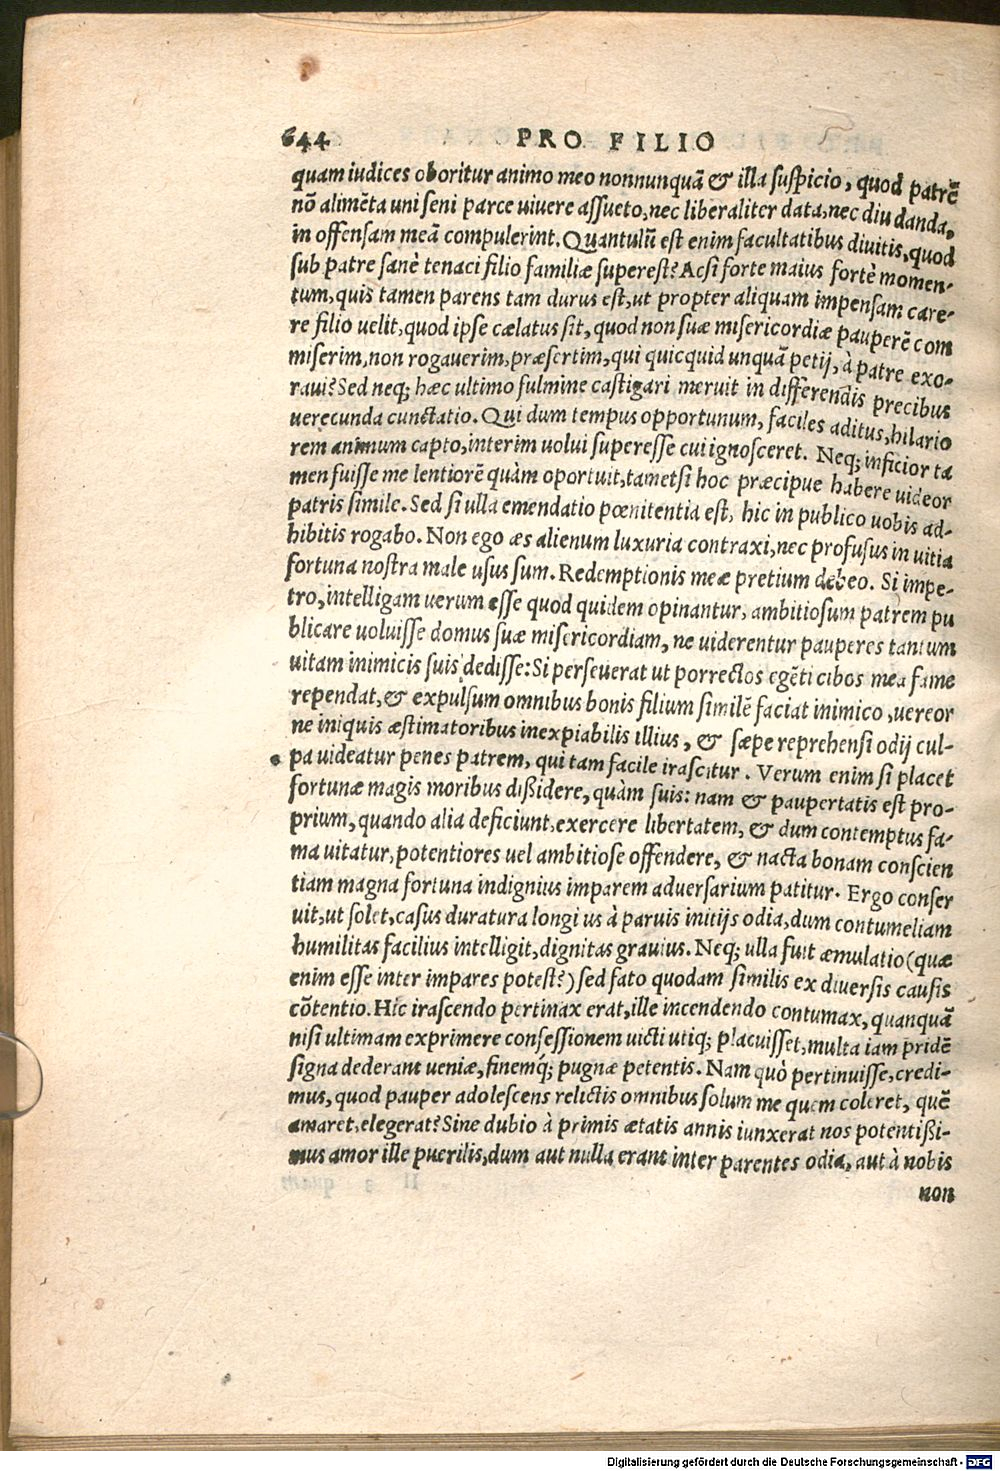 644 PRO FILIO
quam iudices oboritur animo meo nonnunquã & illa suspicio, quod patrẽ
nõ alimẽta uni seni parce uiuere assueto, nec liberaliter data, nec diu danda,
in offensam meã compulerint. Quantulũ est enim facultatibus diuitis, quod
sub patre sanè tenaci filio familiæ superest? Ac si forte maius fortè momen-
tum, quis tamen parens tam durus est, ut propter aliquam impensam care-
re filio uelit, quod ipse cælatus sit, quod non suæ misericordiæ pauperẽ com
miserim, non rogauerim, præsertim, qui quicquid unquã petij, à patre exo-
raui? Sed neq; hæc ultimo fulmine castigari meruit in differendis precibus
uerecunda cunctatio. Qui dum tempus opportunum, faciles aditus, hilario
rem animum capto, interim uolui superesse cui ignosceret. Neq; inficior ta
men fuisse me lentiorẽ quàm oportuit, tametsi hoc præcipue habere uideor
patris simile. Sed si ulla emendatio pœnitentia est, hic in publico uobis ad-
hibitis rogabo. Non ego æs alienum luxuria contraxi, nec profusus in uitia
fortuna nostra male usus sum. Redemptionis meæ pretium debeo. Si impe-
tro, intelligam uerum esse quod quidem opinantur, ambitiosum patrem pu
blicare uoluisse domus suæ misericordiam, ne uiderentur pauperes tantum
uitam inimicis suis dedisse: Si perseuerat ut porrectos egẽti cibos mea fame
rependat, & expulsum omnibus bonis filium similẽ faciat inimico, uereor
ne iniquis æstimatoribus inexpiabilis illius, & sæpe reprehensi odij cul-
pa uideatur penes patrem, qui tam facile irascitur. Verum enim si placet
fortunæ magis moribus dißidere, quàm suis: nam & paupertatis est pro-
prium, quando alia deficiunt, exercere libertatem, & dum contemptus fa-
ma uitatur, potentiores uel ambitiose offendere, & nacta bonam conscien
tiam magna fortuna indignius imparem aduersarium patitur. Ergo conser
uit, ut solet, casus duratura longius à paruis initijs odia, dum contumeliam
humilitas facilius intelligit, dignitas grauius. Neq; ulla fuit æmulatio (quæ
enim esse inter impares potest?) sed fato quodam similis ex diuersis causis
cõtentio. Hic irascendo pertinax erat, ille incendendo contumax, quanquã
nisi ultimam exprimere confessionem uicti utiq; placuisset, multa iam pridẽ
signa dederant ueniæ, finemq́; pugnæ petentis. Nam quò pertinuisse, credi-
mus, quod pauper adolescens relictis omnibus solum me quem coleret, quẽ
amaret, elegerat? Sine dubio à primis ætatis annis iunxerat nos potentißi-
mus amor ille puerilis, dum aut nulla erant inter parentes odia, aut à nobis
non
Digitalisierung gefördert durch die Deutsche Forschungsgemeinschaft - DFG